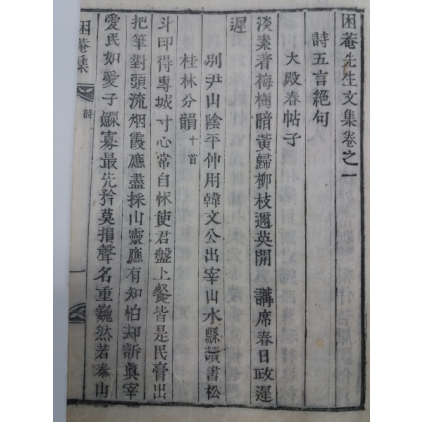 困菴先生文集卷之一
詩五言絶句
大殿春帖子
淡素着梅樹暗黃歸柳枝邇英開 講席春日政遲
遲
別尹山陰平仲用韓文公出宰山水縣讀書松
桂林分韻十首
斗印得專城寸心常自怵使君盤上餐皆是民膏出
把筆對頭流烟霞應盡採山靈應有知怕却訴眞宰
愛民如愛子鰥寡最先矜莫揖聲名重巍然若泰山
困菴集
詩